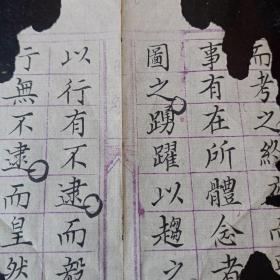 而考之終
事有在所體念者
圖之踴躍以趨之
以行有不逮而毅
行無不逮而皇然